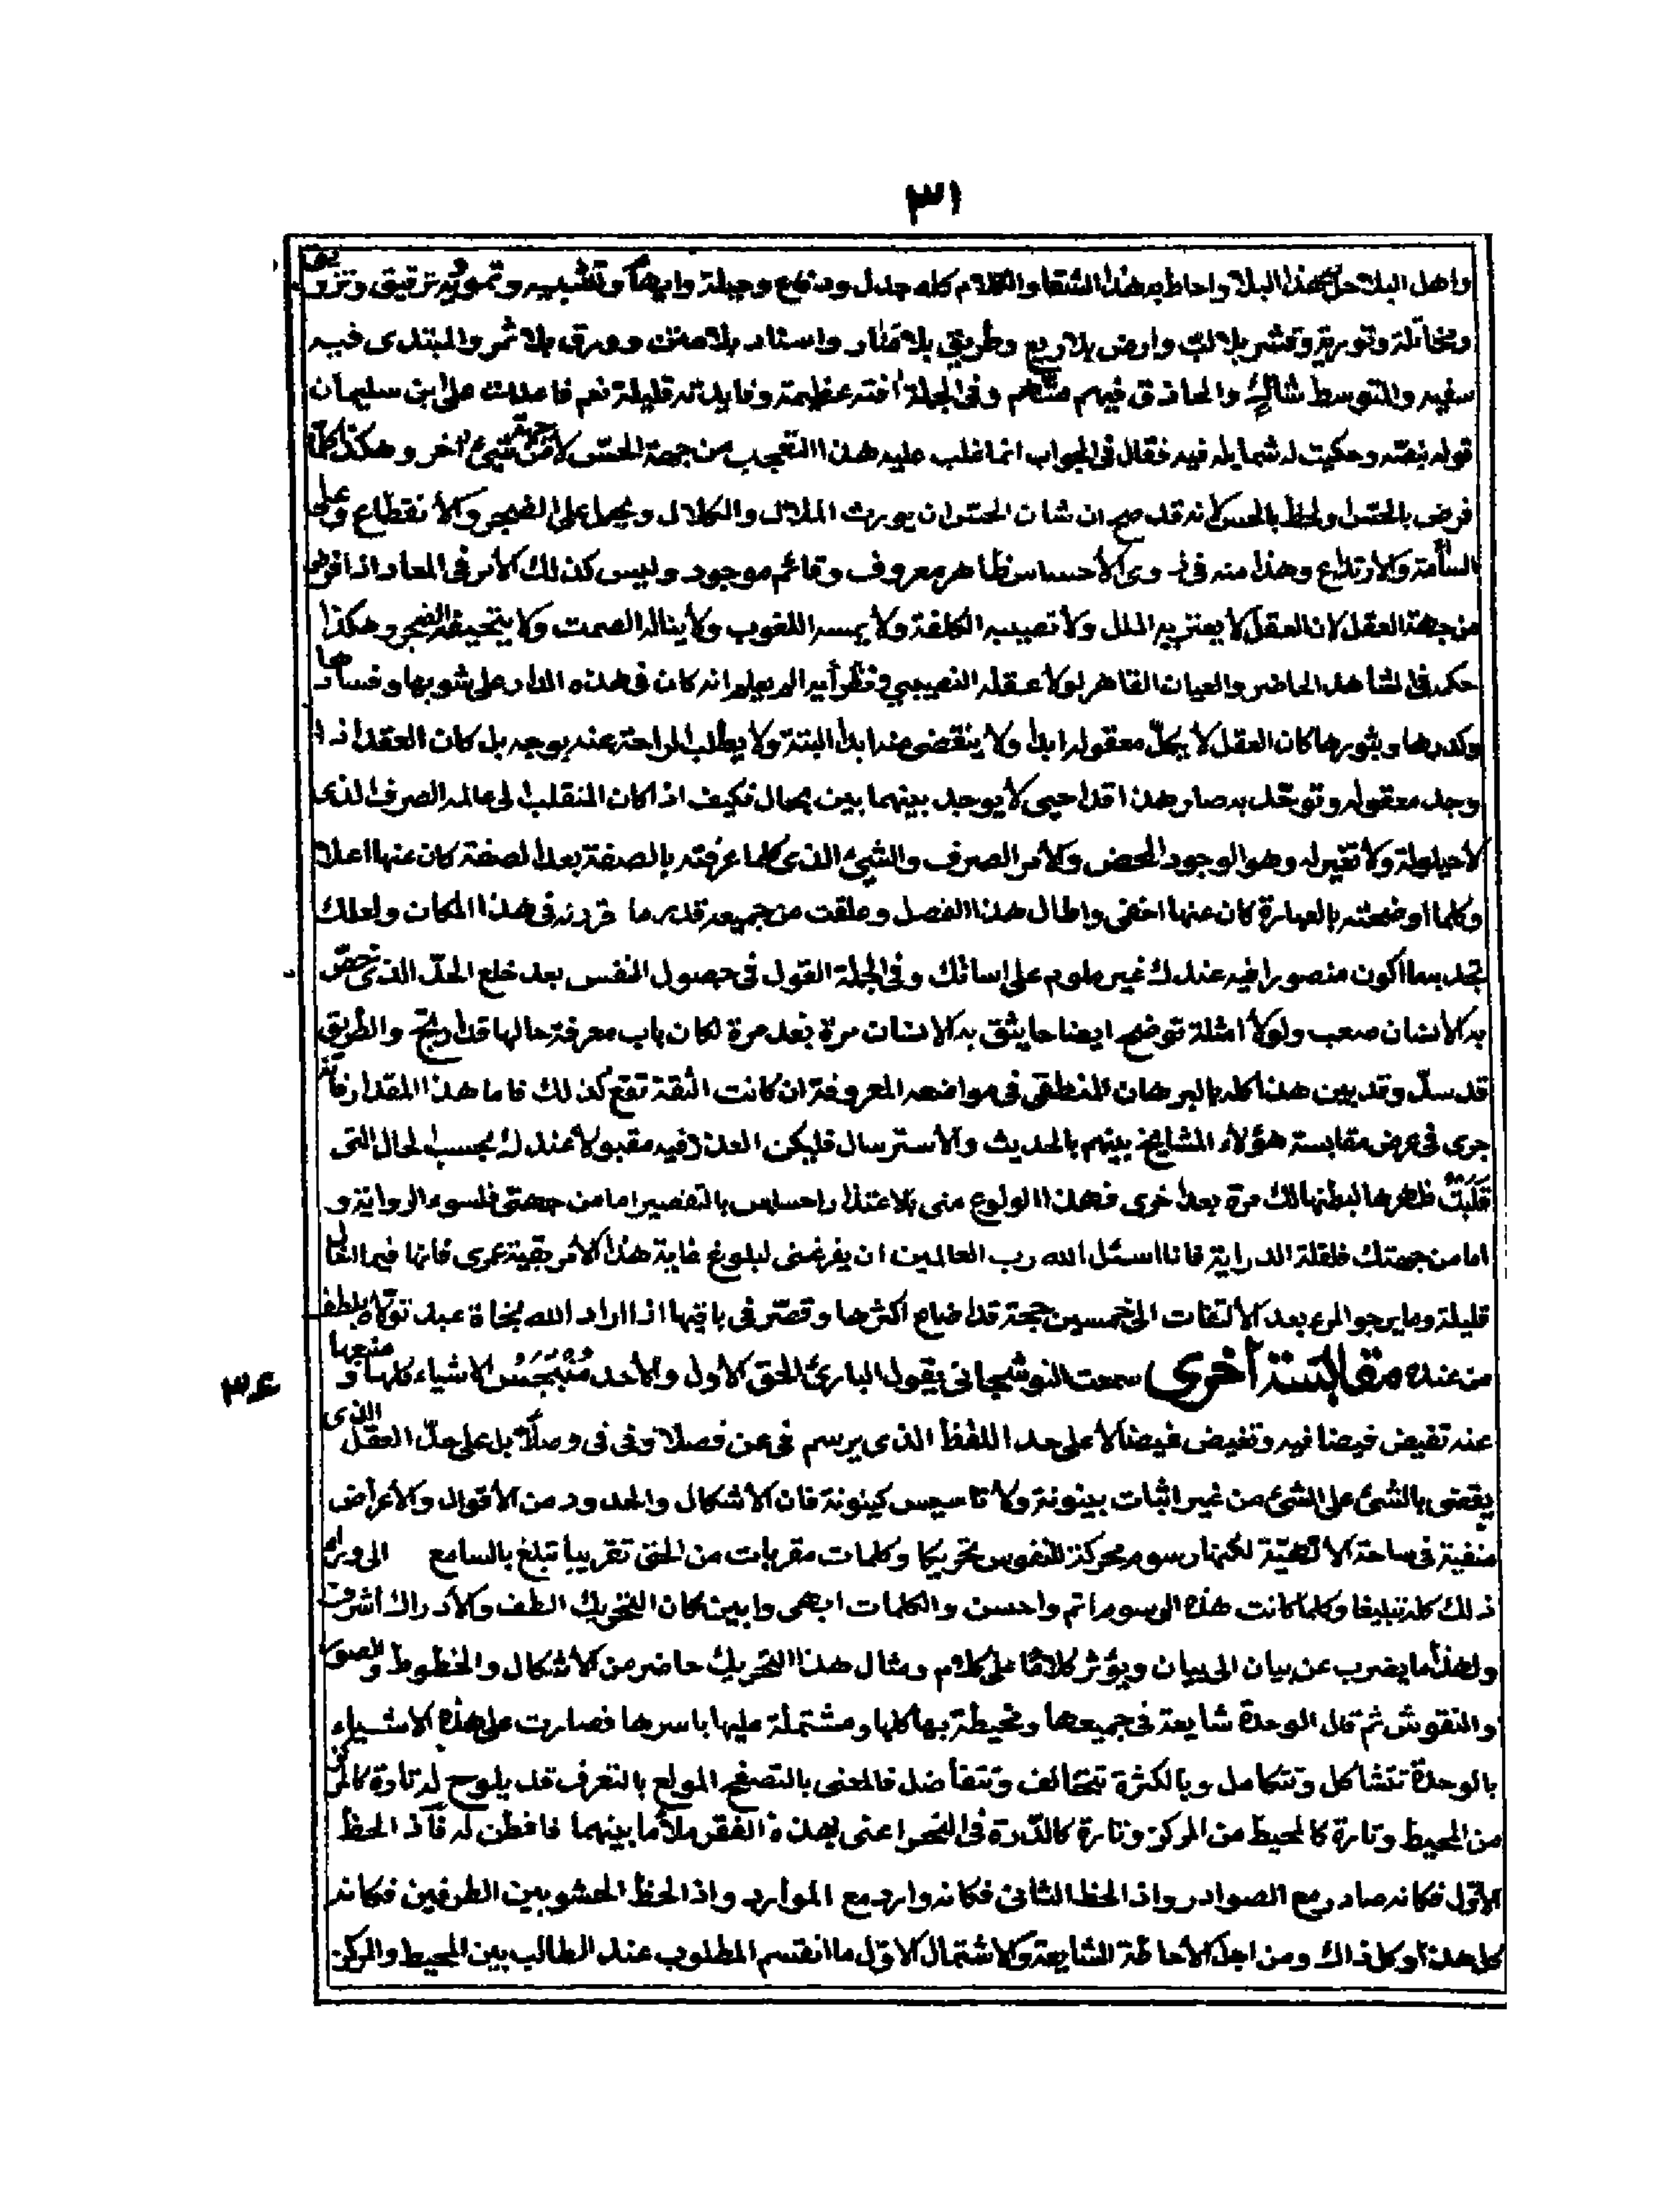 ٣١
واهل البلاء حل بهذا البلاء واحاط به هذا الشقا والكلام كله جدل ودفاع وحيلة وايهام وتشبيه وتمويه وترقيق وتزويق
ومخاتلة وتورية وقشر بلا لب وارض بلا ريع وطريق بلا منار واسناد بلا متن وورق بلا ثمر والمبتدى فيه
سفيه والمتوسط شاك والحاذق فيهم متهم وفى الجملة افته عظيمة وفايدته قليلة نعم فاعدت على ابن سليمان
قوله بنصه وحكيت له شمايله فيه فقال فى الجواب انما غلب عليه هذا التعجب من جهة الحس لا من جهة شىء اخر وهكذا كلما
فرض بالحس او لحظ بالحس لانه قد صح ان شان الحس ان يورث الملال والكلال ويحمل على الضجر والانقطاع وعلى
السأمة والارتداع وهذا منه فى ذوى الاحساس ظاهر معروف وقائم موجود وليس كذلك الامر فى المعاد اذا فرض
من جهة العقل لان العقل لا يعتريه الملل ولا تصيبه الكلفة ولا يمسه اللغوب ولا يناله الصمت ولا يتحيفه الضجر وهكذا
حكمه فى الشاهد الحاضر والعيان القاهر لولا عقله النصيبى ونظرأيه الم يعلم انه كان فى هذه الدار على شوبها وفسادها
وكدرها وبثورها كان العقل لا يكل معقوله ابدا ولا ينقضى منه ابدا البتة ولا يطلب الراحة عنه بوجه بل كان العقل اذا
وجد معقوله وتوحد به صار هذا حتى لا يوجد بينهما بين بحال فكيف اذا كان المنقلب الى عالمه الصرف الذى
لا حيلولة ولا تغير له وهو الوجود المحض والامر الصرف والشىء الذى كلما عرفته بالصفة بعد الصفة كان عنها اعلا
وكلما اوضحته بالعبارة كان عنها اخفى واطال هذا الفصل وعلقت من جميعه قدر ما حررته فى هذا المكان ولعلك
تجد بما اكون منصورا فيه عندك غير ملوم على لسانك وفى الجملة القول فى حصول النفس بعد خلع الحد الذى خص
به الانسان صعب ولولا امثلة توضح ايضاحا يثق به الانسان مرة بعد مرة لكان باب معرفة حالها قد ارتج والطريق
قد سد وقد بين هذا كله بالبرهان المنطقى فى مواضعه المعروفة ان كانت الثقة تقع كذلك فاما هذا المقدار فانه
جرى فى عرض مقابسة هؤلاء المشايخ بينهم بالحديث والاسترسال فليكن العذر فيه مقبولا عندك بحسب الحال التى
قلبت ظهرها لبطنها لك مرة بعد اخرى فهذا الولوع منى بالاعتذار احساس بالتقصير اما من جهتى فلسوء الرواية و
اما من جهتك فلقلة الدراية فانا اسئل الله رب العالمين ان يفرغنى لبلوغ غاية هذا الامر بقية عمرى فانها فيما اخال
قليلة وما يرجو المرء بعد الالتفات الى خمسين حجة قد اضاع اكثرها وقصر فى باقيها اذا اراد الله نجاة عبد تولاه بلطف
من عنده مقابسة اخرى سمعت النوشجانى يقول البارئ الحق الاول والاحد منبجس الاشياء كلها ومنبعها
٣٤
عنه تفيض فيضا فيه وتغيض غيضا لا على حد اللفظ الذى يرسم فى عن فصلا وفى فى وصلا بل على حد العقل الذى
يقضى بالشئ على الشئ من غير اثبات بينونة ولا تاسيس كينونة فان الاشكال والحدود من الاقوال والاعراض
منفية فى ساحة الالهية لكنها رسوم محركة للنفوس تحريكا وكلمات مقربات من الحق تقريبا تبلغ بالسامع الى وراء
ذلك كله تبليغا وكلما كانت هذه الرسوم اتم واحسن والكلمات ابهى وابين كان التحريك الطف والادراك اشرف
ولهذا ما يضرب عن بيان الى بيان ويؤثر كلاما على كلام ومثال هذا التحريك حاضر من الاشكال والخطوط والصور
والنقوش ثم قال الوحدة شايعة فى جميعها ومحيطة بها كلها ومشتملة عليها باسرها فصارت على هذه الاشياء
بالوحدة تتشاكل وتتكامل وبالكثرة تتخالف وتتفاضل فالمعنى بالتصفح المولع بالتعرف قد يلوح له تارة كالمركز
من المحيط وتارة كالمحيط من المركز وتارة كالدرة فى النحر اعنى بهذه الفقر ملأ ما بينهما فافطن له فاذ الحظ
الاول فكانه صادر مع الصوادر واذ الحظ الثانى فكانه وارد مع الموارد واذ الحظ الحشو بين الطرفين فكانه
كل هذا او كل ذاك ومن اجل الاحاطة الشايعة والاشتمال الاول ما انقسم المطلوب عند الطالب بين المحيط والمركز